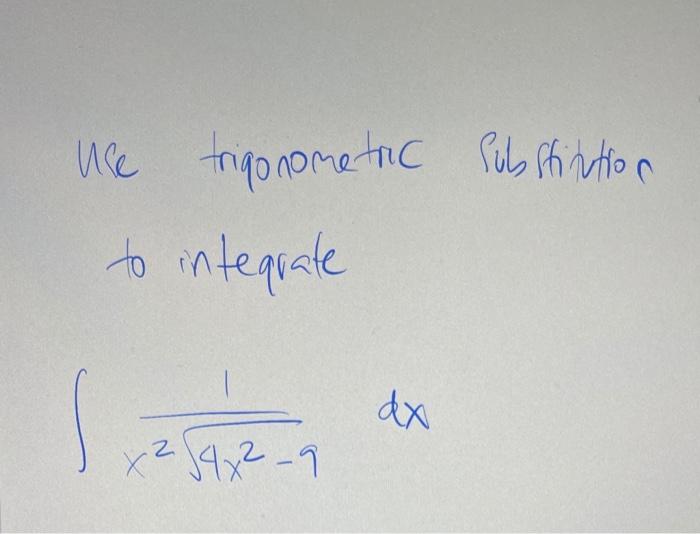 Use trigonometric Substitution
to integrate
∫ 1 / (x²√(4x²-9)) dx